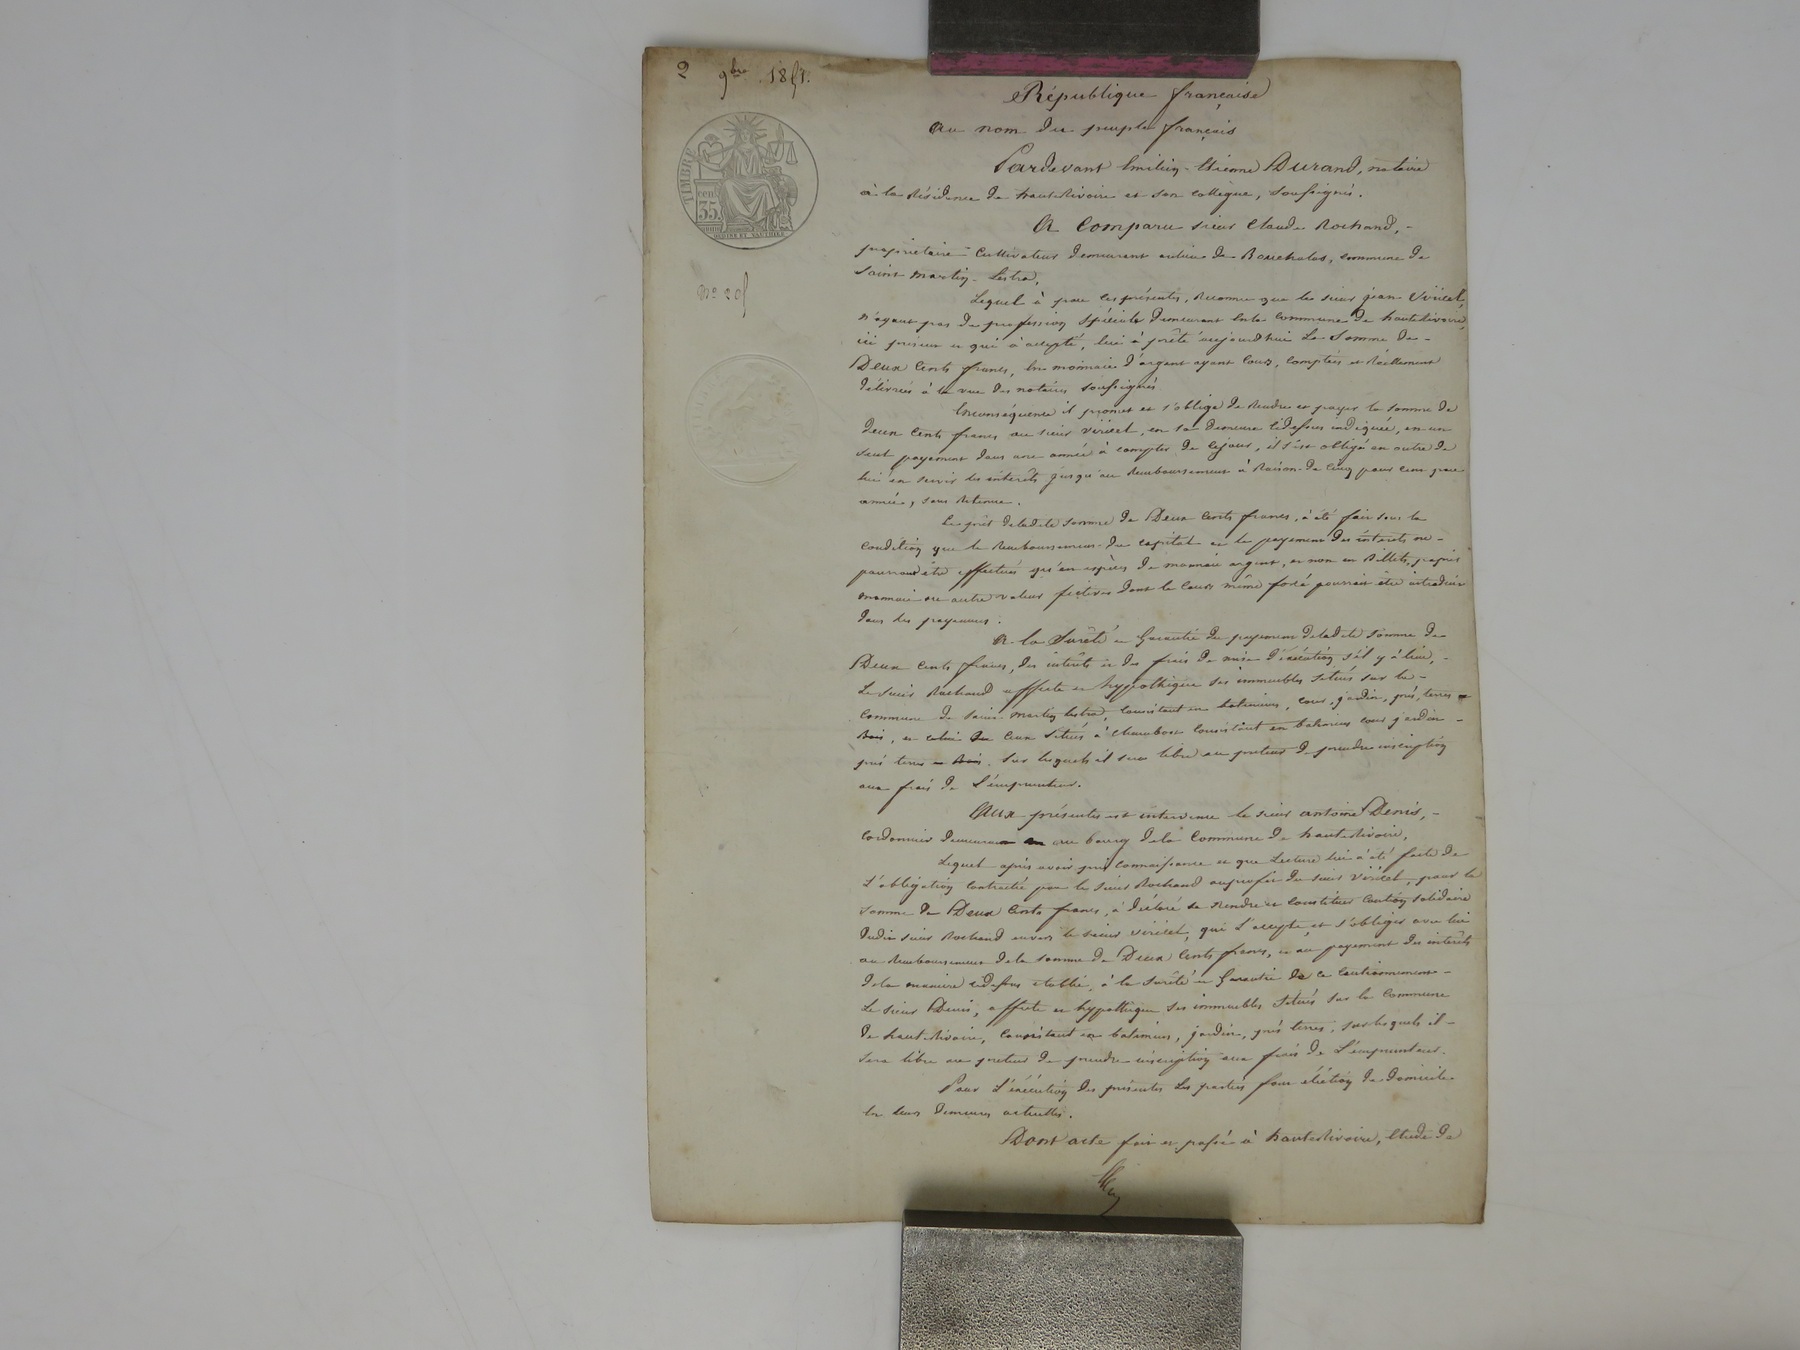 2 9bre 1851.
TIMBRE
cen
35.
No 205
République française
au nom du peuple français
Pardevant Emilien-Etienne Durand, notaire
à la Résidence de hauteRivoire et son collègue, soussignés.
A Comparu sieur Claude Rochand, -
propriétaire Cultivateur demeurant au lieu de Bouchalas, commune de
Saint Martin Lestra,
Lequel à par ces présentes, Reconnu que le sieur jean Viricel,
n'ayant pas de profession spéciale demeurant en la commune de hauteRivoire,
ici présent et qui à accepté, lui à prêté aujourd'hui La Somme de -
Deux Cents francs, en monnaie d'argent ayant Cours, comptés et Réellement
délivrés à la vue des notaires soussignés.
En conséquence il promet et s'oblige de Rendre et payer la somme de
deux Cents francs au sieur Viricel, en sa demeure cidessus indiquée, en un
seul payement dans une année à compter de cejour, il s'est obligé en outre de
lui en servir les intérêts jusqu'au Remboursement à Raison de Cinq pour cent par
année, sans Retenue.
Le prêt deladite somme de Deux Cents francs, à été fait sous la
condition que le Remboursement du capital et le payement des intérets ne -
pourront être effectués qu'en espèces de monnaie argent, et non en Billets, papier
monnaie ou autre valeur fictives dont le Cours même forcé pourrait être introduit
dans les payements.
A la Sureté et Garantie du payement deladite Somme de
Deux Cents francs, des intérêts et des frais de mise d'exécution s'il y à lieu, -
Le sieur Rochand affecte et hypothèque ses immeubles situés sur la -
Commune de Saint Martin Lestra, Consistant en batiments, cour, jardin, prés, terres et
Bois, et ceux situés à Consistant en batiments cour jardin -
prés terres et Bois. Sur lesquels il sera libre au preteur de prendre inscription
aux frais de L'emprunteur.
Aux présentes est intervenu le sieur antoine Denis, -
Cordonnier demeurant au bourg dela Commune de hauteRivoire,
Lequel après avoir pris connaissance et que Lecture lui à été faite de
L'obligation Contractée par le sieur Rochand auprofit du sieur Viricel, pour la
somme de Deux Cents francs, à déclaré se Rendre et Constituer Caution solidaire
dudit sieur Rochand envers le sieur Viricel, qui L'accepte, et s'obliger avec lui
au Remboursement dela somme de Deux Cents francs, et au payement des intérêts
dela manière cidessus établie, à la Sureté et Garantie de ce Cautionnement -
Le sieur Denis, affecte et hypothèque ses immeubles situés sur la Commune
de hauteRivoire, Consistant en batiments, jardin, prés terres, sur lesquels il -
sera libre au preteur de prendre inscription aux frais de L'emprunteur.
Pour L'éxécution des présentes Les parties font élection de domicile
En leurs demeures actuelles.
Dont acte fait et passé à hauteRivoire, Etude de